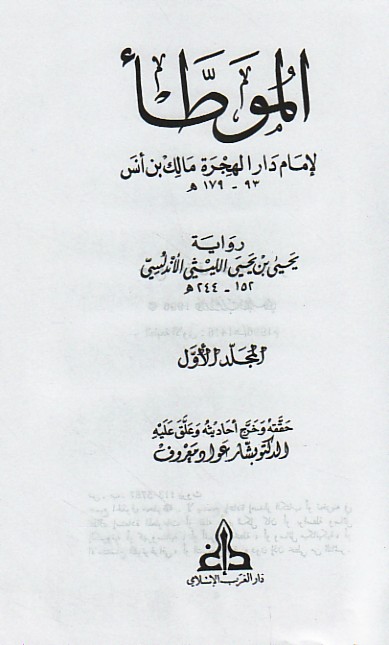 المُوَطَّأ
لإمام دار الهجرة مالك بن أنس
٩٣ - ١٧٩ هـ
رواية
يحيى بن يحيى الليثي الأندلسي
١٥٢ - ٢٤٤ هـ
المجلد الأول
حققه وخرج أحاديثه وعلق عليه
الدكتور بشار عواد معروف
دار الغرب الإسلامي